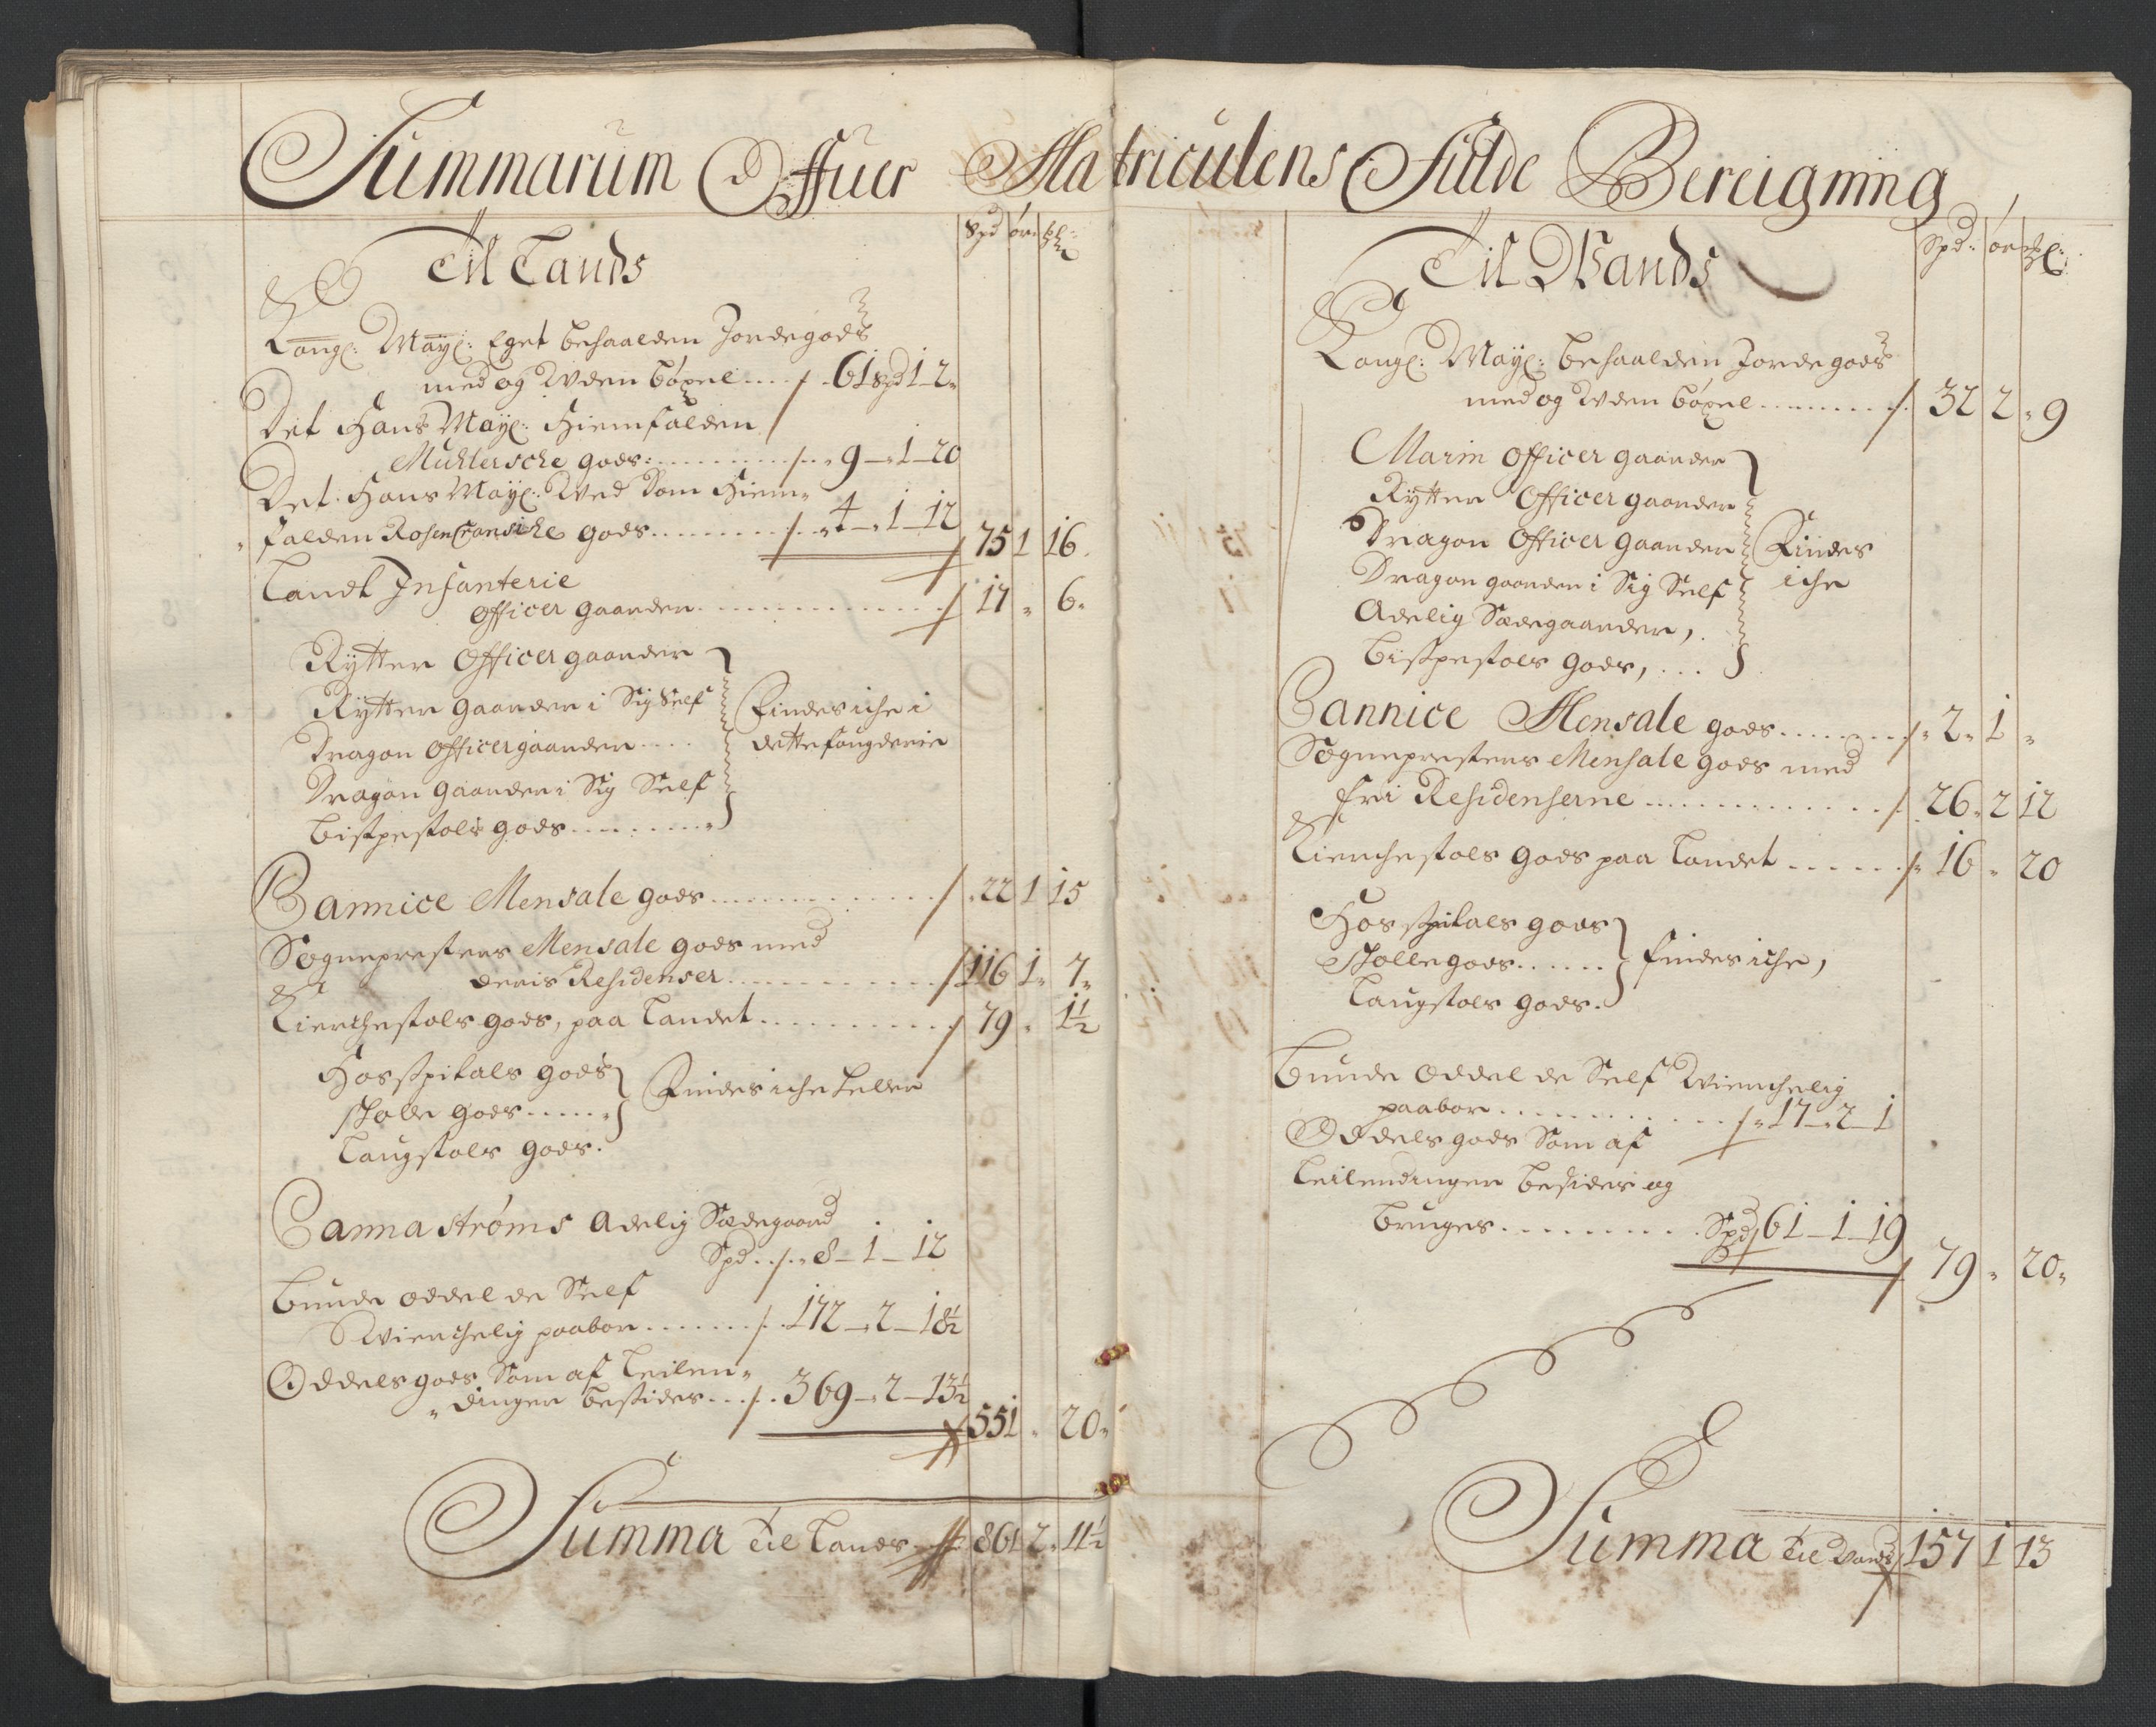 Summarum Offuer Matriculens Fulde Bereigning
Til Lands
Spd ør
Kongl: Mayt: Eget behaalden Jordegods
med og Uden böxel .... 61 Spd 1 - 2
Det Hans Mayt: Hiemfalden
Muhlersche gods: ........ 9 - 1 - 20
Det Hans Mayt: Ved Dom Hiem-
falden Rosencransiche gods ........ 4 - 1 - 12
75 1 16
Landt Infanterie
Officer gaarder ........ 17 - 6
Rytter Officer gaarder
Rytter gaarder i Sig Self
Dragon Officer gaarder ....
Dragon gaarder i Sig Self
Bispestols gods ........
Findes iche i
dette fougderie
Cannice Mensale gods ........ 22 1 15
Sogneprestens Mensale gods med
deris Residenser ........ 116 1 7
Kierchestols gods, paa Landet ........ 79 - 1½
Hosspitals gods
Skolle gods ......
Laugstols gods.
Findes iche heller
Canna ströms Adelig Sædegaard
Spd .. 8 - 1 - 12
Bunde oddel de Self
Virchelig paaboer ....... 172 - 2 - 18½
Oddels gods Som af Leilen-
dinger besides .... 369 - 2 - 13½
551 - 20
Summa til Lands 861 2 11½
Til Vands
Spd: ør
Kongl: Mayt: behaalden Jordegods
med og Uden böxel ........ 32 2 9
Marin Officer gaarder
Rytter Officer gaarder
Dragon Officer gaarder
Dragon gaarder i Sig Self
Adelig Sædegaarder,
Bispestols gods, ...
Findes
iche
Cannice Mensale gods ........ 2 1 -
Sogneprestens Mensale gods med
fri Residenserne ........ 26 2 12
Kierchestols gods paa Landet ...... 16 - 20
Hosspitals gods
Skolle gods ......
Laugstols gods.
findes iche,
Bunde Oddel de Self Virchelig
paaboer ........ 17 - 2 - 1
Oddels gods Som af
Leilendinger besider og
bruges ........ Spd 61 - 1 - 19
79 - 20
Summa til Vands 157 1 13